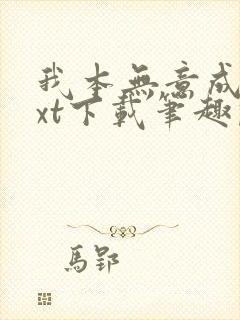 我本無意成
xt下載筆趣
馬郢